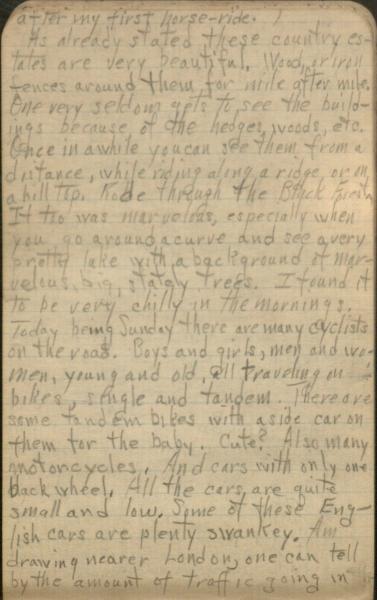 after my first horse-ride. )
As already stated these country es-
tates are very beautiful. Wood, or iron
fences around them for mile after mile.
One very seldom gets to see the build-
ings because of the hedges, woods, etc.
Once in awhile you can see them from a
distance, while riding along a ridge, or on
a hill top. Rode through the Black Forest.
It too was marvelous, especially when
you go around a curve and see a very
pretty lake with a background of mar-
velous, big, stately trees. I found it
to be very chilly in the mornings.
Today being Sunday there are many cyclists
on the road. Boys and girls, men and wo-
men, young and old, all traveling on
bikes, single and tandem. There are
some tandem bikes with a side car on
them for the baby. Cute? Also many
motorcycles. And cars with only one
back wheel. All the cars are quite
small and low. Some of these Eng-
lish cars are plenty swankey. Am
drawing nearer London, one can tell
by the amount of traffic going in